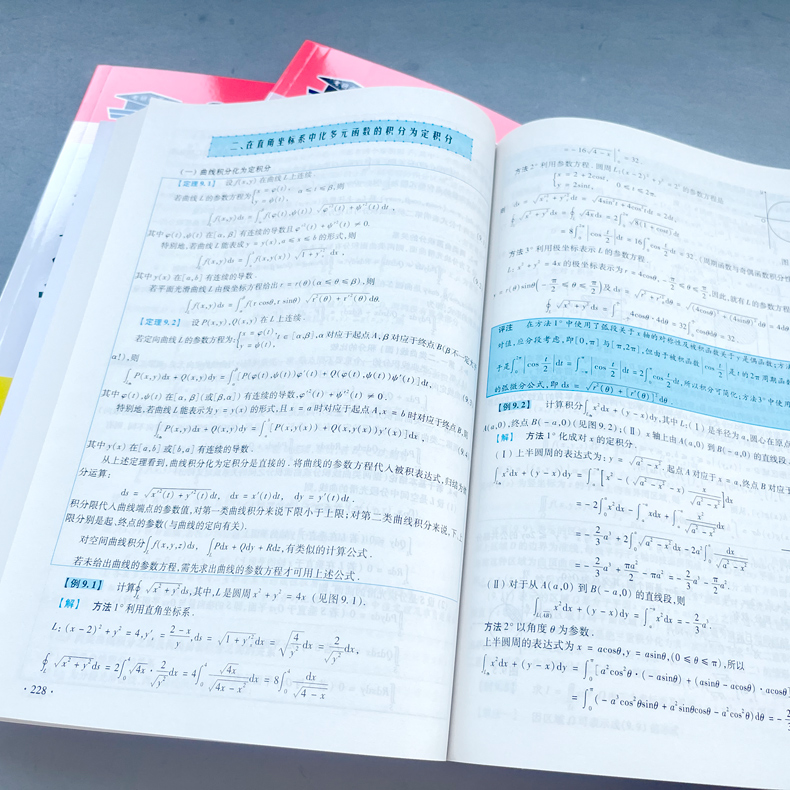 二、在直角坐标系中化多元函数的积分为定积分
(一) 曲线积分化为定积分
【定理9.1】 设f(x,y)在曲线L上连续.
若曲线L的参数方程为{x = φ(t), y = ψ(t), α ≤ t ≤ β,则
∫_L f(x,y)ds = ∫_α^β f(φ(t),ψ(t)) √(φ'²(t) + ψ'²(t)) dt,
其中φ(t),ψ(t)在[α,β]有连续的导数且φ'²(t) + ψ'²(t) ≠ 0.
特别地,若曲线L能表成y = y(x),a ≤ x ≤ b的形式,则
∫_L f(x,y)ds = ∫_a^b f(x,y(x)) √(1 + y'²) dx,
其中y(x)在[a,b]有连续的导数.
若平面光滑曲线L由极坐标方程给出r = r(θ)(α ≤ θ ≤ β),则
∫_L f(x,y)ds = ∫_α^β f(r cosθ,r sinθ) √(r²(θ) + r'²(θ)) dθ.
【定理9.2】 设P(x,y),Q(x,y)在L上连续.
若定向曲线L的参数方程为{x = φ(t), y = ψ(t), t∈[α,β],α对应于起点A,β对应于终点B(β不一定大于
α!),则
∫_L P(x,y)dx + Q(x,y)dy = ∫_α^β [P(φ(t),ψ(t))φ'(t) + Q(φ(t),ψ(t))ψ'(t)]dt,
其中φ(t),ψ(t)在[α,β][或[β,α]]有连续的导数,φ'²(t) + ψ'²(t) ≠ 0.
特别地,若曲线L能表示为y = y(x)的形式,且x = a时对应于起点A,x = b时对应于终点B,则
∫_L P(x,y)dx + Q(x,y)dy = ∫_a^b [P(x,y(x)) + Q(x,y(x))y'(x)]dx,
其中y(x)在[a,b][或[b,a]]有连续的导数.
从上述定理看到,曲线积分化为定积分是直接的.将曲线的参数方程代入被积表达式,归结为积
分运算:
ds = √(x'²(t) + y'²(t)) dt, dx = x'(t)dt, dy = y'(t)dt.
积分限代入曲线端点的参数值,对第一类曲线积分来说下限小于上限;对第二类曲线积分来说,下、上
限分别是起、终点的参数(与曲线的定向有关).
对空间曲线积分∫_L f(x,y,z)ds, ∫_L Pdx + Qdy + Rdz,有类似的计算公式.
若未给出曲线的参数方程,需先求出曲线的参数方程才可用上述公式.
【例9.1】 计算∮_L √(x² + y²) ds,其中,L是圆周x² + y² = 4x (见图9.1).
【解】 方法1° 利用直角坐标系.
L: (x − 2)² + y² = 4, y' = (2 − x)/y, ds = √(1 + y'²) dx = √(4/y²) dx = 2/√(y²) dx,
∮_L √(x² + y²) ds = 2∫_0^4 √(4x) · 2/√(y²) dx = 4∫_0^4 √(4x)/√(4x − x²) dx = 8∫_0^4 dx/√(4 − x)
· 228 ·
= −16√(4 − x) |_0^4 = 32.
方法2° 利用参数方程. 圆周L:(x − 2)² + y² = 2²的参数方程为
{x = 2 + 2cost, y = 2sint, 0 ≤ t ≤ 2π.
则 ds = √(x'² + y'²) dt = √(4sin²t + 4cos²t) dt = 2dt,
∮_L √(x² + y²) ds = ∮_L √(4x) ds = 2∫_0^{2π} √(8(1 + cost)) dt
= 8∫_0^{2π} |cos t/2| dt = 16∫_0^π cos t/2 dt = 32. (周期函数与奇偶函数积分性
方法3° 利用极坐标表示L的参数方程.
L: x² + y² = 4x的极坐标表示为r = 4cosθ, −π/2 ≤ θ ≤ π/2.因此,就有L的参数方程
y = r(θ)sinθ (−π/2 ≤ θ ≤ π/2)及ds = √(r² + r'²) dθ = √((4cosθ)² + (4sinθ)²) dθ = 4dθ
∮_L √(x² + y²) ds = ∫_{−π/2}^{π/2} 4cosθ · 4dθ = 32∫_0^{π/2} cosθdθ = 32.
评注 在方法1°中使用了弧段关于x轴的对称性及被积函数关于y是偶函数;方法
对值,应分段考虑,即[0,π]与[π,2π],但由于被积函数|cos t/2|是t的2π周期函数
于是∫_0^{2π} |cos t/2| dt = ∫_{−π}^{π} |cos t/2| dt = 2∫_0^π cos t/2 dt,所以积分可简化;方法3°中使用
的弧微分公式,即ds = √(r²(θ) + [r'(θ)]²) dθ.
【例9.2】 计算积分∫_L x²dx + (y − x)dy,其中L:(Ⅰ)是半径为a,圆心在原点
A(a,0),终点B(−a,0)(见图9.2);(Ⅱ) x轴上由A(a,0)到B(−a,0)的直线段.
【解】 方法1° 化成对x的定积分.
(Ⅰ) 上半圆周的表达式为: y = √(a² − x²), 起点A对应于x = a,终点B对应于
∫_L x²dx + (y − x)dy = ∫_a^{−a} [x² − (√(a² − x²) − x) x/√(a² − x²)]dx
= −2∫_0^a x²dx − ∫_a^{−a} xdx + ∫_a^{−a} x²/√(a² − x²) dx
= −2/3 a³ + 2∫_0^a √(a² − x²) dx − 2a²∫_0^a dx/√(a² − x²)
= −2/3 a³ + πa²/2 − πa² = −2/3 a³ − π/2 a².
(Ⅱ) 对于从A(a,0)到B(−a,0)的直线段,则
∫_{L(AB)} x²dx + (y − x)dy = ∫_a^{−a} x²dx = −2/3 a³.
方法2° 以角度θ为参数.
上半圆周的表达式为x = acosθ,y = asinθ,(0 ≤ θ ≤ π),所以
∫_L x²dx + (y − x)dy = ∫_0^π [a²cos²θ · (−asinθ) + (asinθ − acosθ) · acosθ]
= ∫_0^π (−a³cos²θsinθ + a²sinθcosθ − a²cos²θ)dθ = −2